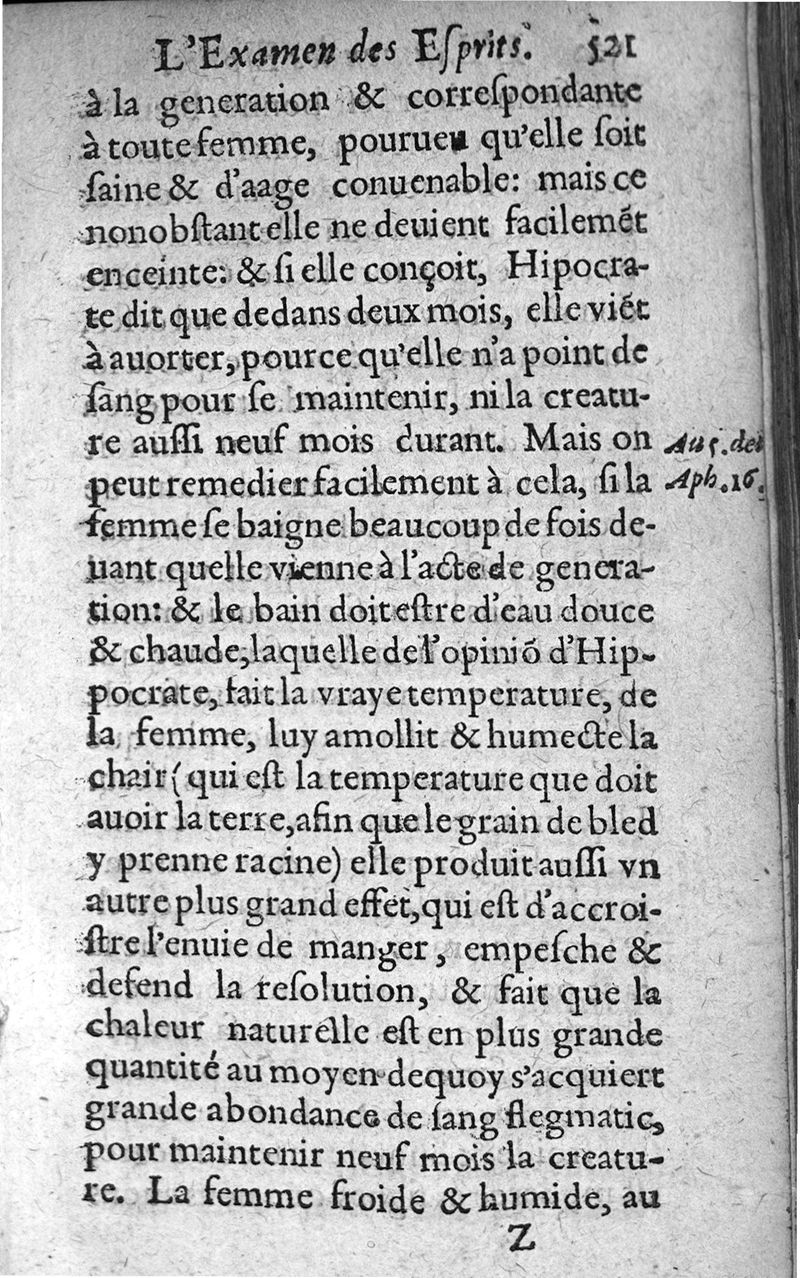 L'Examen des Eſprits. 521
à la generation & correſpondante
à toute femme, pourueu qu'elle ſoit
ſaine & d'aage conuenable: mais ce
nonobſtant elle ne deuient facilemẽt
enceinte: & ſi elle conçoit, Hipocra-
te dit que dedans deux mois, elle viẽt
à auorter, pource qu'elle n'a point de
ſang pour ſe maintenir, ni la creatu-
re auſſi neuf mois durant. Mais on
Au 5. des
peut remedier facilement à cela, ſi la
Aph. 16.
femme ſe baigne beaucoup de fois de-
uant quelle vienne à l'acte de genera-
tion: & le bain doit eſtre d'eau douce
& chaude, laquelle de l'opiniõ d'Hip-
pocrate, fait la vraye temperature, de
la femme, luy amollit & humecte la
chair (qui eſt la temperature que doit
auoir la terre, afin que le grain de bled
y prenne racine) elle produit auſſi vn
autre plus grand effet, qui eſt d'accroi-
ſtre l'enuie de manger, empeſche &
defend la reſolution, & fait que la
chaleur naturelle eſt en plus grande
quantité au moyen dequoy s'acquiert
grande abondance de ſang flegmatic,
pour maintenir neuf mois la creatu-
re. La femme froide & humide, au
Z